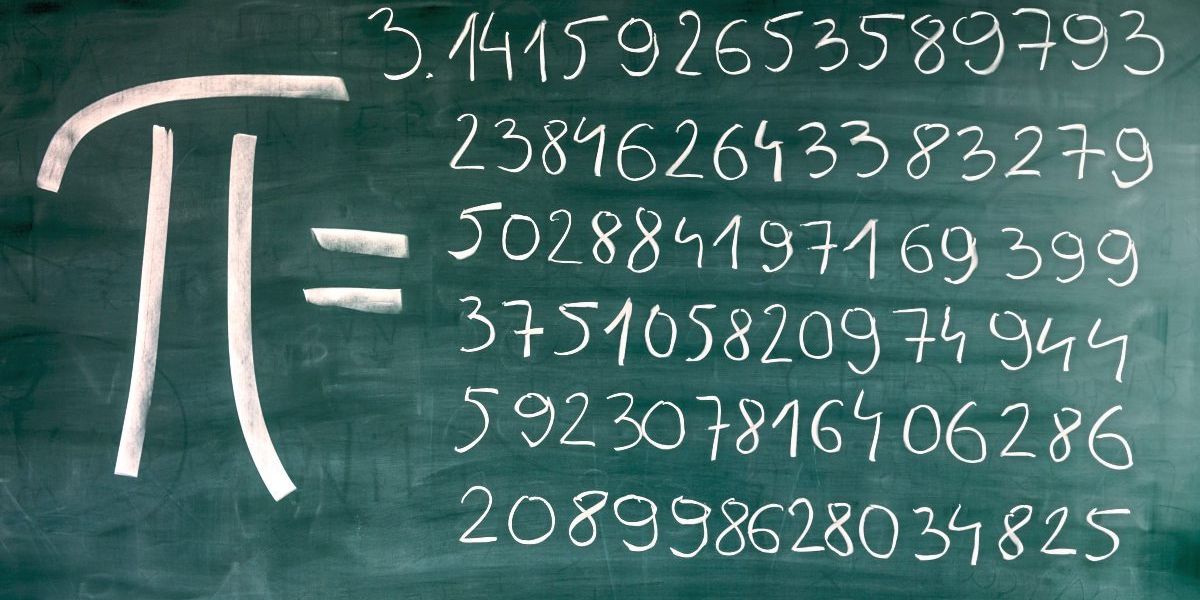 π =
3.141592653589793
238462643383279
502884197169399
375105820974944
592307816406286
208998628034825